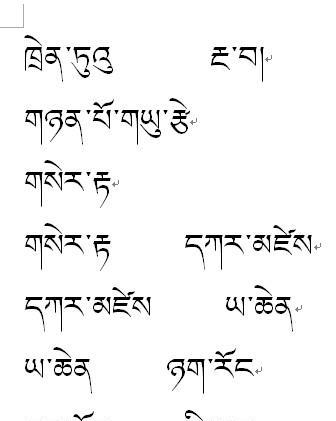 ཁྲེན་ཏུའུ རྔ་བ།
གཉན་པོ་གཡུ་རྩེ
གསེར་རྟ
གསེར་རྟ དཀར་མཛེས
དཀར་མཛེས ཡ་ཆེན
ཡ་ཆེན ཉག་རོང